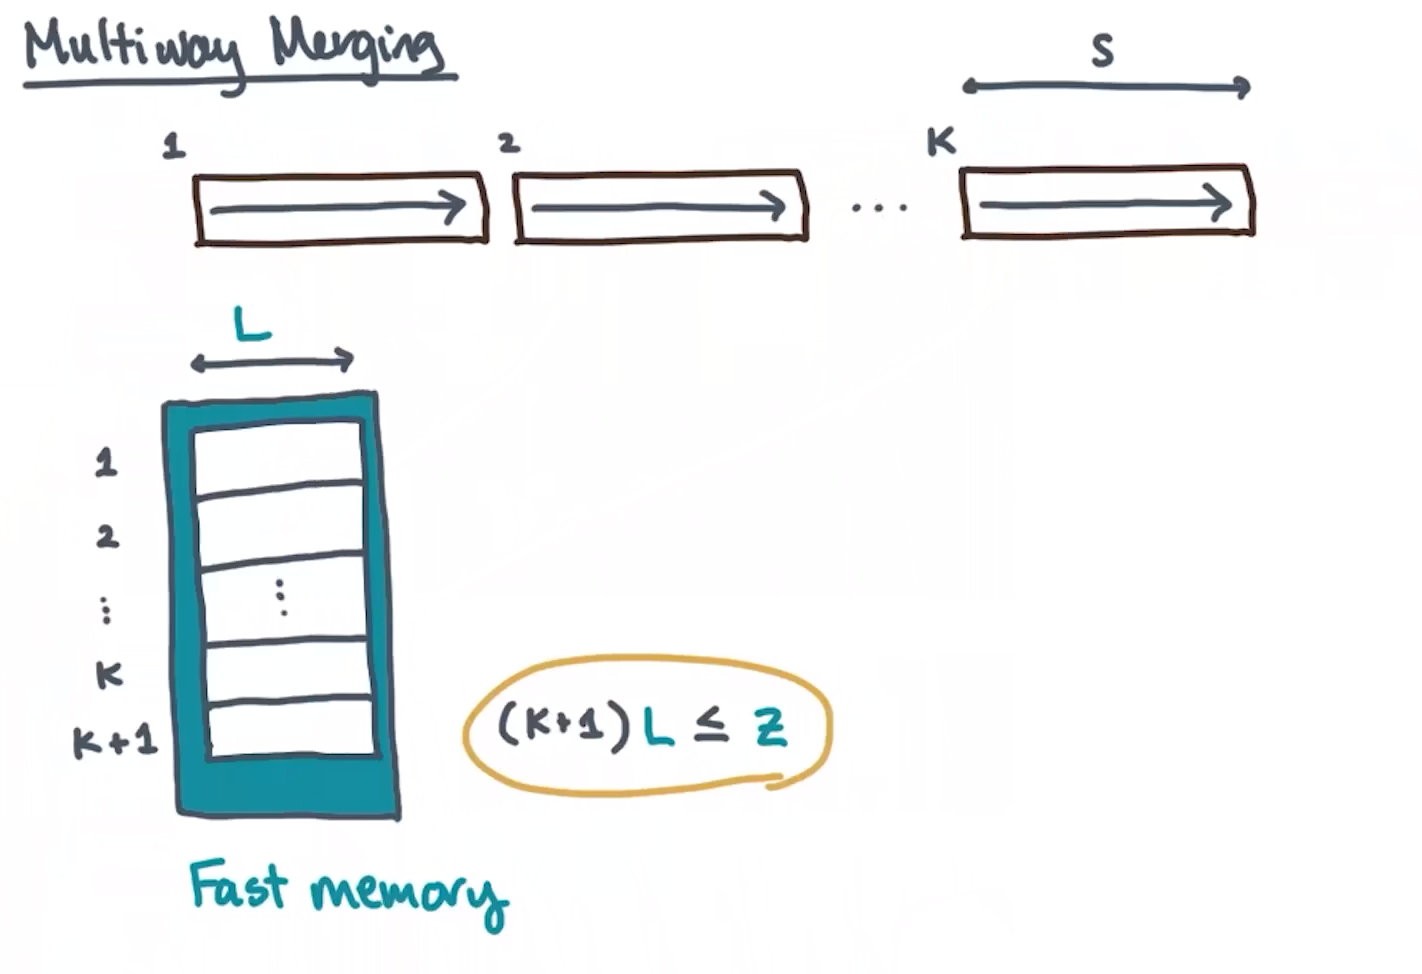 Multiway Merging
S
1 2 ... K
L
1
2
⋮
K
K+1
(K+1) L ≤ Z
Fast memory